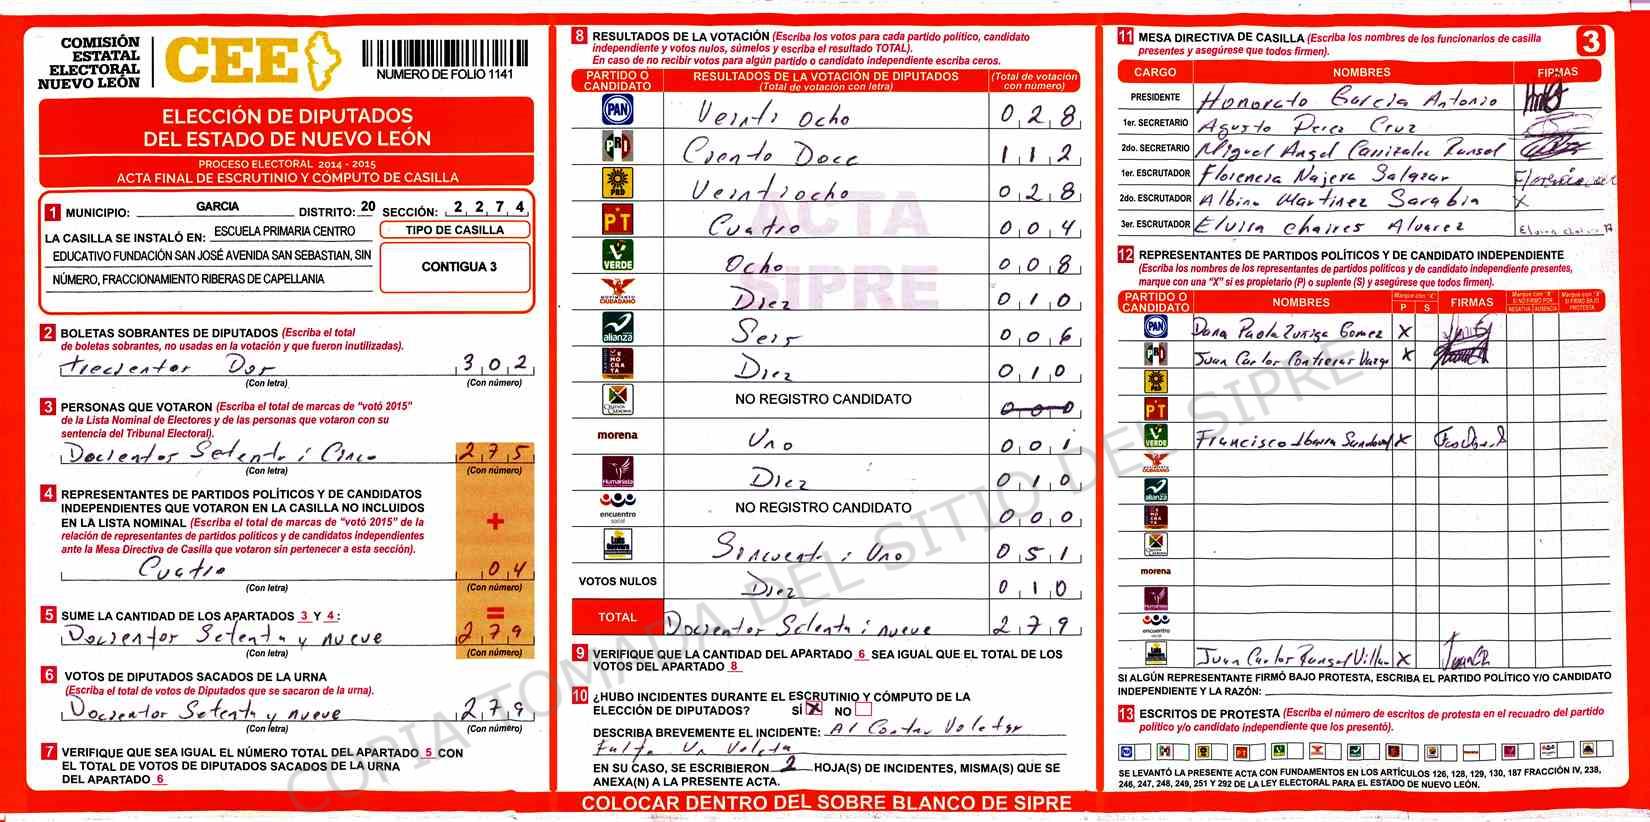 COMISIÓN
ESTATAL
ELECTORAL
NUEVO LEÓN
CEE
NUMERO DE FOLIO 1141
ELECCIÓN DE DIPUTADOS
DEL ESTADO DE NUEVO LEÓN
PROCESO ELECTORAL 2014 - 2015
ACTA FINAL DE ESCRUTINIO Y CÓMPUTO DE CASILLA
1 MUNICIPIO: GARCIA DISTRITO: 20 SECCIÓN: 2 2 7 4
LA CASILLA SE INSTALÓ EN: ESCUELA PRIMARIA CENTRO
EDUCATIVO FUNDACIÓN SAN JOSÉ AVENIDA SAN SEBASTIAN, SIN
NÚMERO, FRACCIONAMIENTO RIBERAS DE CAPELLANIA
TIPO DE CASILLA
CONTIGUA 3
2 BOLETAS SOBRANTES DE DIPUTADOS (Escriba el total
de boletas sobrantes, no usadas en la votación y que fueron inutilizadas).
trecientos Dos 3 0 2
(Con letra) (Con número)
3 PERSONAS QUE VOTARON (Escriba el total de marcas de "votó 2015"
de la Lista Nominal de Electores y de las personas que votaron con su
sentencia del Tribunal Electoral).
Docientos Setenta i Cinco 2 7 5
(Con letra) (Con número)
4 REPRESENTANTES DE PARTIDOS POLÍTICOS Y DE CANDIDATOS
INDEPENDIENTES QUE VOTARON EN LA CASILLA NO INCLUIDOS
EN LA LISTA NOMINAL (Escriba el total de marcas de "votó 2015" de la
relación de representantes de partidos políticos y de candidatos independientes
ante la Mesa Directiva de Casilla que votaron sin pertenecer a esta sección).
+
Cuatro 0 4
(Con letra) (Con número)
=
5 SUME LA CANTIDAD DE LOS APARTADOS 3 Y 4:
Docientos Setenta y nueve 2 7 9
(Con letra) (Con número)
6 VOTOS DE DIPUTADOS SACADOS DE LA URNA
(Escriba el total de votos de Diputados que se sacaron de la urna).
Docientos Setenta y nueve 2 7 9
(Con letra) (Con número)
7 VERIFIQUE QUE SEA IGUAL EL NÚMERO TOTAL DEL APARTADO 5 CON
EL TOTAL DE VOTOS DE DIPUTADOS SACADOS DE LA URNA
DEL APARTADO 6
8 RESULTADOS DE LA VOTACIÓN (Escriba los votos para cada partido político, candidato
independiente y votos nulos, súmelos y escriba el resultado TOTAL).
En caso de no recibir votos para algún partido o candidato independiente escriba ceros.
PARTIDO O CANDIDATO RESULTADOS DE LA VOTACIÓN DE DIPUTADOS (Total de votación con letra) (Total de votación con número)
PAN Veinti ocho 0 2 8
PRI Ciento Doce 1 1 2
PRD Veintiocho 0 2 8
PT Cuatro 0 0 4
VERDE Ocho 0 0 8
MOVIMIENTO CIUDADANO Diez 0 1 0
alianza Seis 0 0 6
DEMOCRATA Diez 0 1 0
NO REGISTRO CANDIDATO 0 0 0
morena Uno 0 0 1
Humanista Diez 0 1 0
encuentro social NO REGISTRO CANDIDATO 0 0 0
Luis Sincuenta i Uno 0 5 1
VOTOS NULOS Diez 0 1 0
TOTAL Docientos Setenta i nueve 2 7 9
ACTA
SIPRE
9 VERIFIQUE QUE LA CANTIDAD DEL APARTADO 6 SEA IGUAL QUE EL TOTAL DE LOS
VOTOS DEL APARTADO 8
10 ¿HUBO INCIDENTES DURANTE EL ESCRUTINIO Y CÓMPUTO DE LA
ELECCIÓN DE DIPUTADOS? SÍ X NO
DESCRIBA BREVEMENTE EL INCIDENTE: Al Contar
Falta Un
EN SU CASO, SE ESCRIBIERON 2 HOJA(S) DE INCIDENTES, MISMA(S) QUE SE
ANEXA(N) A LA PRESENTE ACTA.
COLOCAR DENTRO DEL SOBRE BLANCO DE SIPRE
11 MESA DIRECTIVA DE CASILLA (Escriba los nombres de los funcionarios de casilla
presentes y asegúrese que todos firmen).
3
CARGO NOMBRES FIRMAS
PRESIDENTE Honorato Garcia Antonio
1er. SECRETARIO Agusto Perez Cruz
2do. SECRETARIO Miguel Angel Canizales
1er. ESCRUTADOR Florencia Najera Salazar Florencia
2do. ESCRUTADOR Albina Martinez Sarabia X
3er. ESCRUTADOR Elvira Chaires Alvarez Elvira chaires A
12 REPRESENTANTES DE PARTIDOS POLÍTICOS Y DE CANDIDATO INDEPENDIENTE
(Escriba los nombres de los representantes de partidos políticos y de candidato independiente presentes,
marque con una "X" si es propietario (P) o suplente (S) y asegúrese que todos firmen).
PARTIDO O CANDIDATO NOMBRES Marque con "X" P S FIRMAS Marque con "X" SI NO FIRMÓ POR: NEGATIVA AUSENCIA Marque con "X" SI FIRMÓ BAJO PROTESTA
PAN Dana Paola Zuñiga Gomez X
PRI Juan Carlos Contreras X
PRD
PT
VERDE Francisco Ibarra Sandoval X
CIUDADANO
alianza
morena
Humanista
encuentro social
Juan Carlos Rangel X
SI ALGÚN REPRESENTANTE FIRMÓ BAJO PROTESTA, ESCRIBA EL PARTIDO POLÍTICO Y/O CANDIDATO
INDEPENDIENTE Y LA RAZÓN:
13 ESCRITOS DE PROTESTA (Escriba el número de escritos de protesta en el recuadro del partido
político y/o candidato independiente que los presentó).
SE LEVANTÓ LA PRESENTE ACTA CON FUNDAMENTOS EN LOS ARTÍCULOS 126, 128, 129, 130, 187 FRACCIÓN IV, 238,
246, 247, 248, 249, 251 Y 292 DE LA LEY ELECTORAL PARA EL ESTADO DE NUEVO LEÓN.
COPIA TOMADA DEL SITIO DEL SIPRE